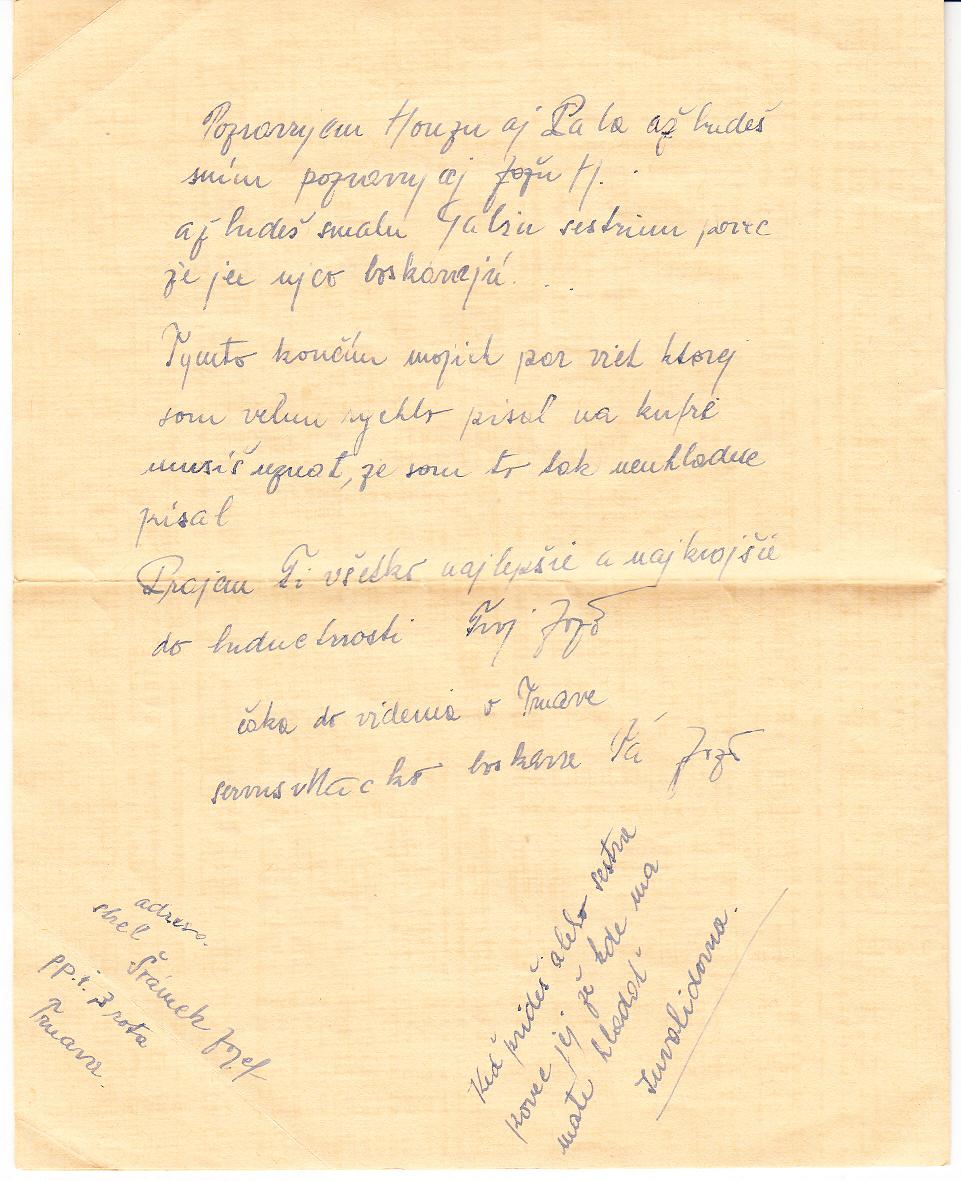 Pozravujem Honzu aj Pala až budeš
sním pozravuj aj Jožu H. .
až budeš smalu Gabiu sestrinu povec
že jee ujco boskávajú. . .
Tymto končím mojich par viet ktorej
som velmi rychlo pisal na kufré
musiš uznat, že som to tak neuhladne
pisal
Prajem Ti všetko najlepšie a najkrajšie
do buducnosti Tvoj Jožo
čaka do videnia v Trnave
servus boskava Ťa Jožo
adresa.
strel
Šrámek Jozef
pp. rota
Trnava.
Keď prideš alebo sestra
povec jej že kde ma
mate hladať
Invalidovna.